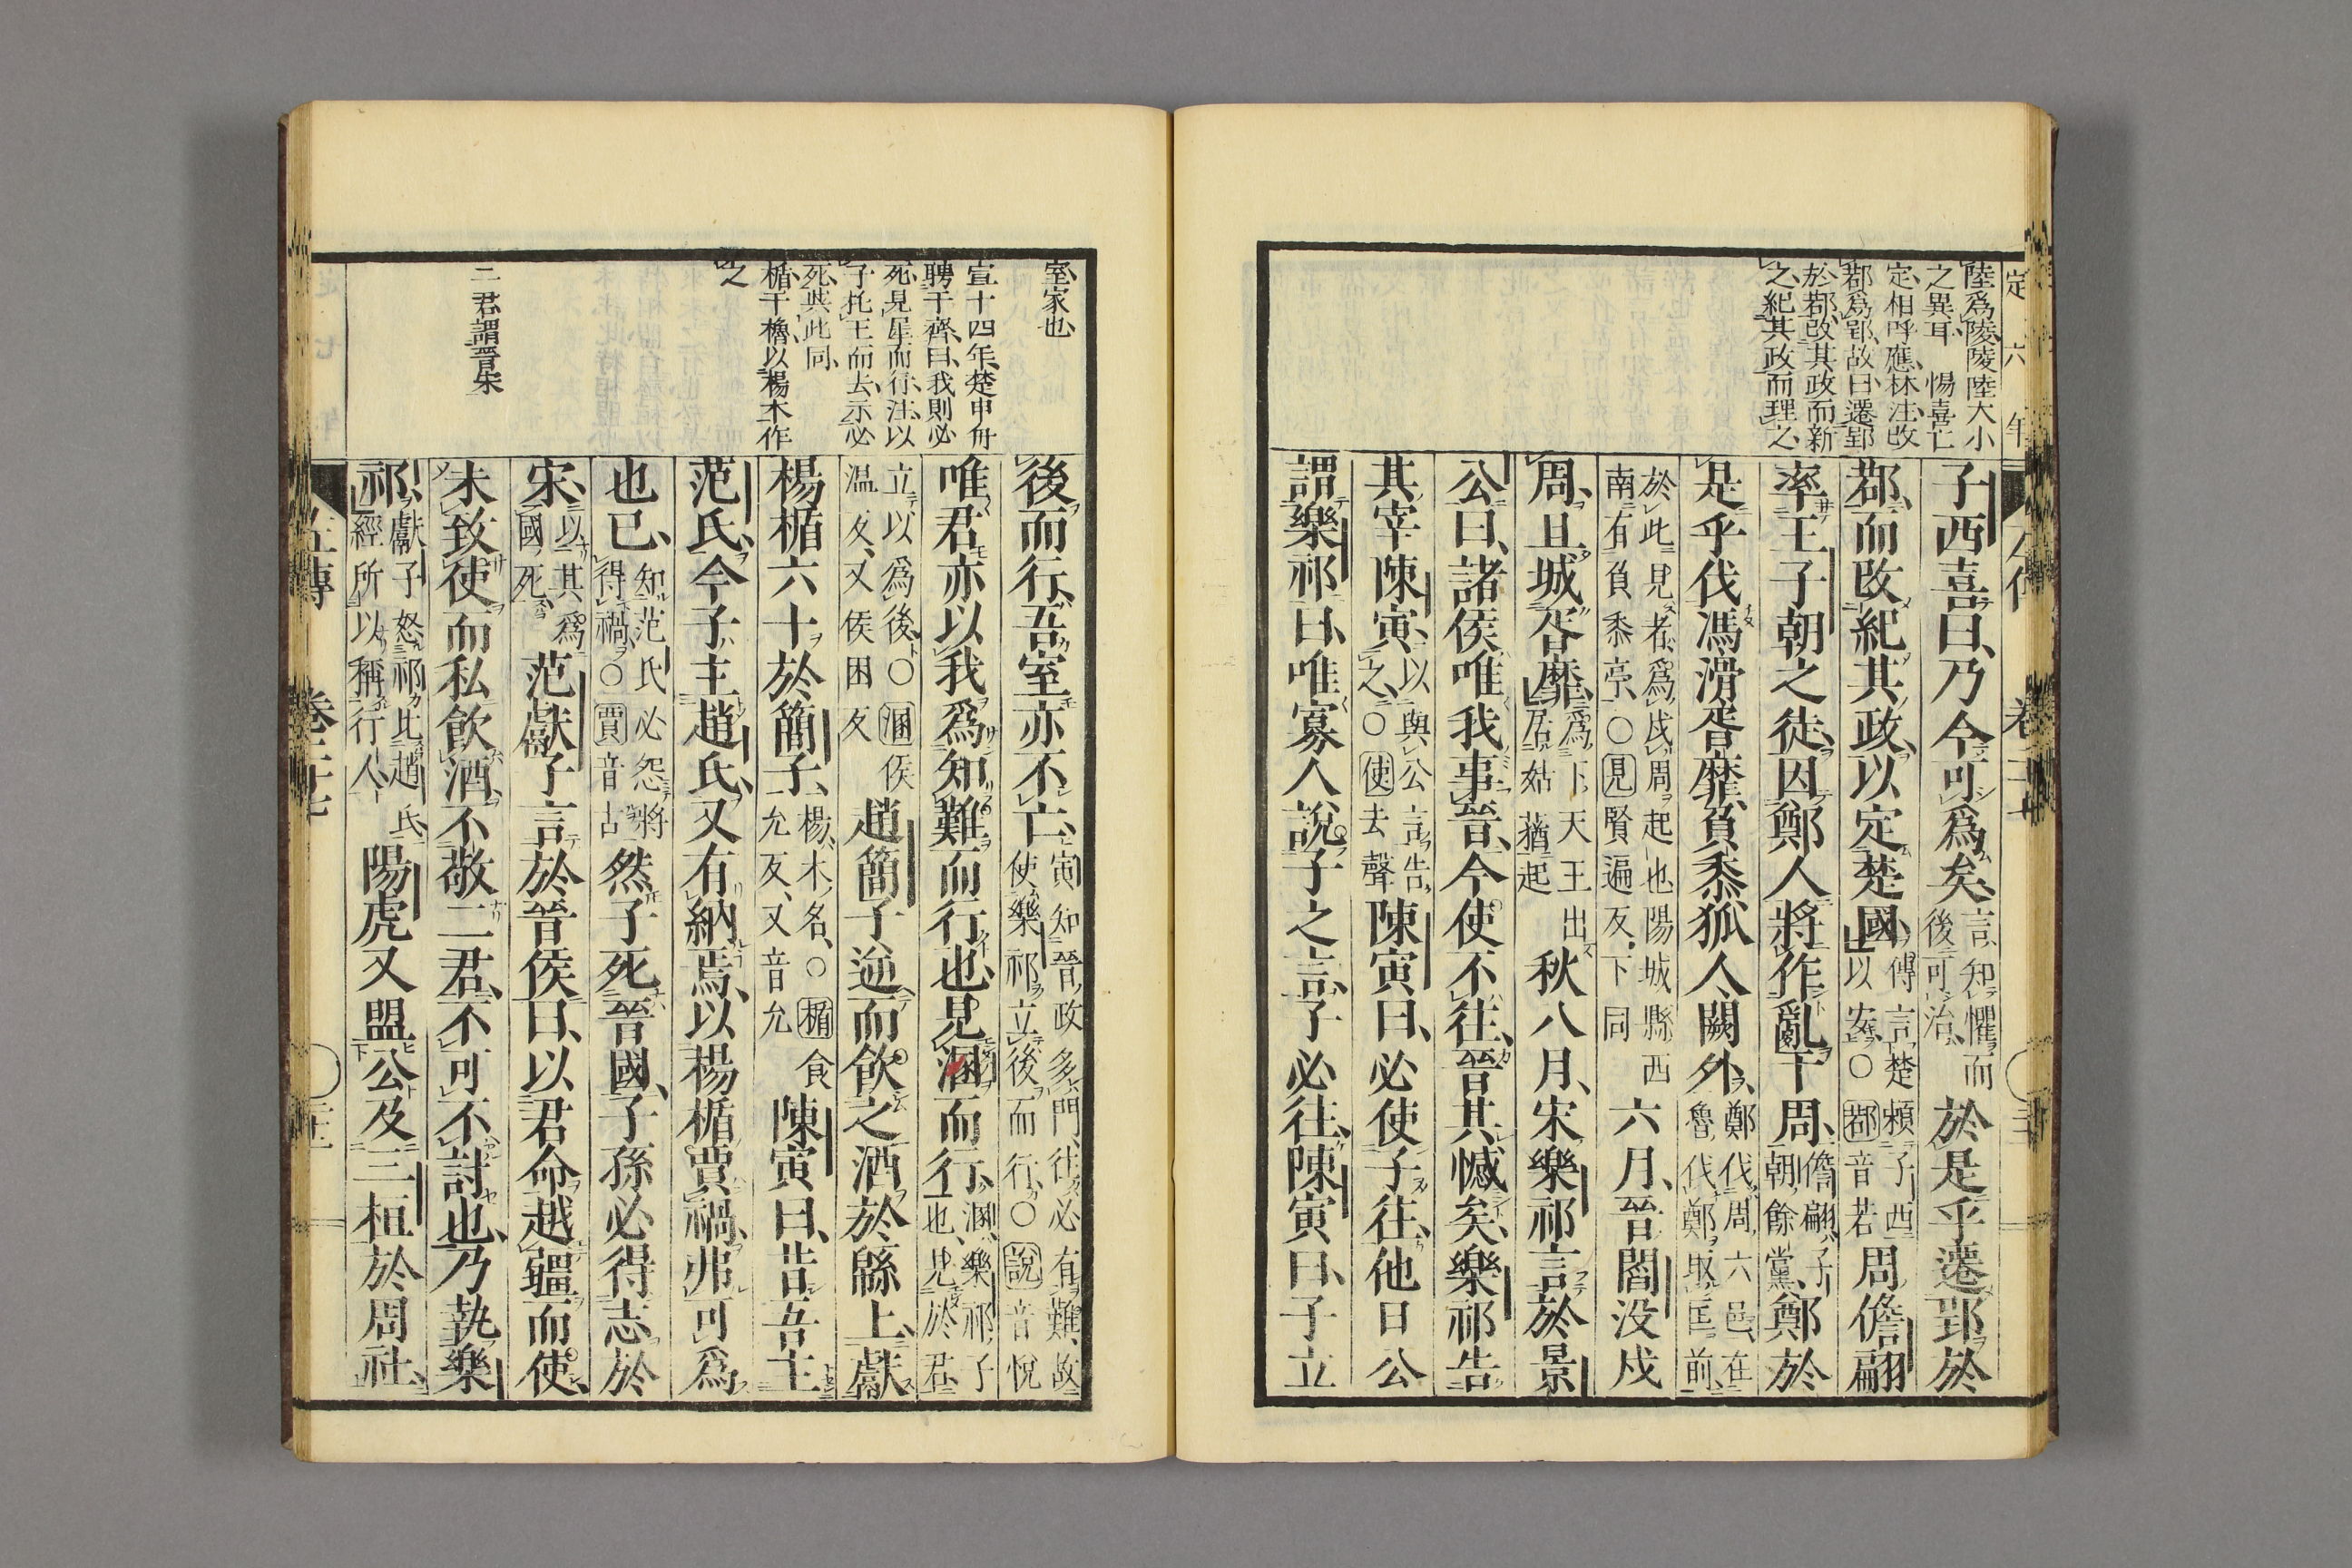 定六年
陸、爲陵、陵陸大小
之異耳 惕喜亡
定、相呼應、林注、改
鄀爲郢、故曰、遷郢
於鄀、改其政而新
之、紀其政而理之
子西喜曰、乃今可爲矣、言、知懼而後可治、於是乎遷郢於
鄀、而改紀其政、以定楚國、傳言楚賴子西以安、○鄀音若 周儋翩
率王子朝之徒、因鄭人將作亂于周、儋翩、子朝餘黨、鄭於
是乎伐馮滑胥靡負黍狐人闕外、鄭伐周六邑、在魯伐鄭取匡前、
於此見者、爲戍周起也陽城縣西南有負黍亭、○見賢遍反、下同 六月、晉閻没戍
周、且城胥靡、爲下天王出居姑蕕起 秋八月、宋樂祁言於景
公曰、諸侯唯我事晉、今使不往、晉其憾矣、樂祁告
其宰陳寅、以與公言告之、○使去聲 陳寅曰、必使子往、他日公
謂樂祁曰、唯寡人說子之言、子必往、陳寅曰、子立
室家也
宣十四年、楚申舟
聘于齊、曰、我則必
死、見犀而行、注、以
子托王而去、示必
死、與此同、
楯、干櫓、以楊木作
之
二君、謂晉宋
後而行、吾室亦不亡、寅知晉政多門、往必有難、故使樂祁立後而行、○說音悅
唯君亦以我爲知難而行也、見溷而行、溷、樂祁子也、見於君
立以爲後、○溷侯温反、又侯困反 趙簡子逆而飲之酒於緜上、獻
楊楯六十於簡子、楊、木名、○楯食允反、又音允 陳寅曰、昔吾主
范氏、今子主趙氏、又有納焉、以楊楯賈禍、弗可爲
也已、知范氏必怨將得禍、○賈音古 然子死晉國、子孫必得志於
宋、以其爲國死 范獻子言於晉侯曰、以君命越疆而使、
未致使而私飲酒、不敬二君、不可不討也、乃執樂
祁、獻子怒祁比趙氏、經所以稱行人 陽虎又盟公及三桓於周社、